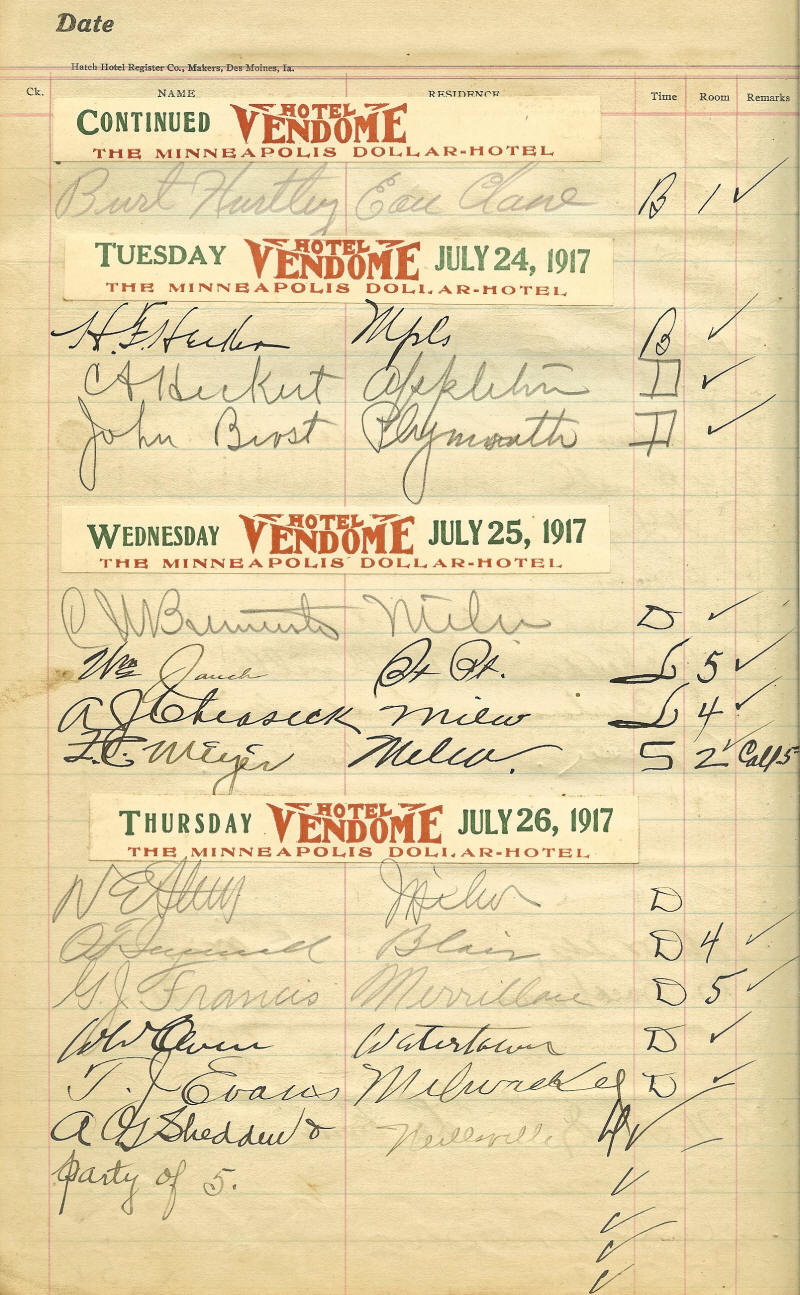 Date
Hatch Hotel Register Co., Makers, Des Moines, Ia.
Ck. NAME RESIDENCE Time Room Remarks
CONTINUED HOTEL VENDOME
THE MINNEAPOLIS DOLLAR-HOTEL
Burt Hurtley Eau Claire B 1 ✓
TUESDAY HOTEL VENDOME JULY 24, 1917
THE MINNEAPOLIS DOLLAR-HOTEL
H. F. Mpls B ✓
C A Heckert Appleton D ✓
John Brost Plymouth D ✓
WEDNESDAY HOTEL VENDOME JULY 25, 1917
THE MINNEAPOLIS DOLLAR-HOTEL
Milw D ✓
Wm Jauch L 5 ✓
A J Milw L 4 ✓
F. C. Meyer Milw. S 2 ✓ Call 5
THURSDAY HOTEL VENDOME JULY 26, 1917
THE MINNEAPOLIS DOLLAR-HOTEL
Milw D
Blair D 4 ✓
G. J. Francis Merrillan D 5 ✓
W W Olven Watertown D ✓
T. J. Evans Milwaukee D ✓
A G Shedden & Neillsville ✓
party of 5. ✓
✓
✓
✓